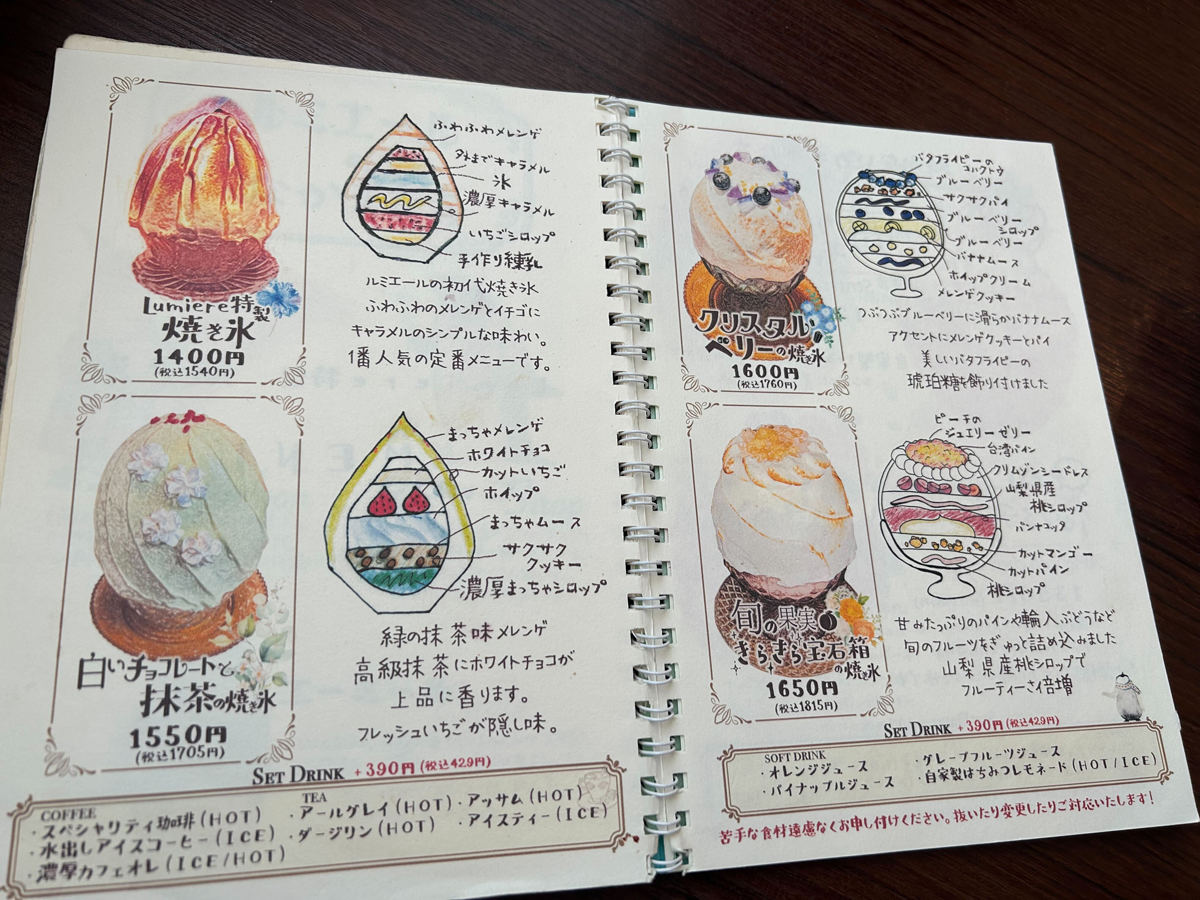 Lumiere特製
焼き氷
1400円
(税込1540円)
ふわふわメレンゲ
外までキャラメル
氷
濃厚キャラメル
いちごシロップ
手作り練乳
ルミエールの初代焼き氷
ふわふわのメレンゲとイチゴに
キャラメルのシンプルな味わい。
1番人気の定番メニューです。
白いチョコレートと
抹茶の焼き氷
1550円
(税込1705円)
まっちゃメレンゲ
ホワイトチョコ
カットいちご
ホイップ
まっちゃムース
サクサク
クッキー
濃厚まっちゃシロップ
緑の抹茶味メレンゲ
高級抹茶にホワイトチョコが
上品に香ります。
フレッシュいちごが隠し味。
SET DRINK +390円(税込429円)
COFFEE
・スペシャリティ珈琲(HOT)
・水出しアイスコーヒー(ICE)
・濃厚カフェオレ(ICE/HOT)
TEA
・アールグレイ(HOT)
・ダージリン(HOT)
・アッサム(HOT)
・アイスティー(ICE)
クリスタル
ベリーの焼き氷
1600円
(税込1760円)
バタフライピーの
コハクトウ
ブルーベリー
サクサクパイ
ブルーベリー
シロップ
ブルーベリー
バナナムース
ホイップクリーム
メレンゲクッキー
つぶつぶブルーベリーに滑らかバナナムース
アクセントにメレンゲクッキーとパイ
美しいバタフライピーの
琥珀糖を飾り付けました
旬の果実
きらきら宝石箱
の焼き氷
1650円
(税込1815円)
ピーチの
ジュエリーゼリー
台湾パイン
クリムゾンシードレス
山梨県産
桃シロップ
パンナコッタ
カットマンゴー
カットパイン
桃シロップ
甘みたっぷりのパインや輸入ぶどうなど
旬のフルーツをぎゅっと詰め込みました
山梨県産桃シロップで
フルーティーさ倍増
SET DRINK +390円(税込429円)
SOFT DRINK
・オレンジジュース
・パイナップルジュース
・グレープフルーツジュース
・自家製はちみつレモネード(HOT/ICE)
苦手な食材遠慮なくお申し付けください。抜いたり変更したりご対応いたします!